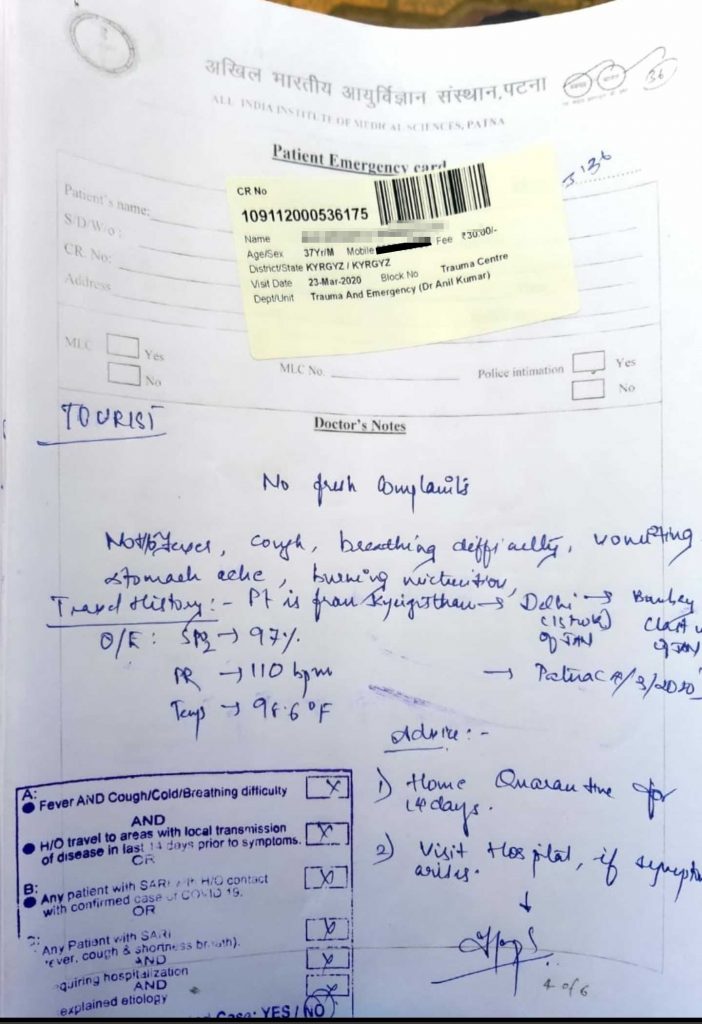 अखिल भारतीय आयुर्विज्ञान संस्थान, पटना
36
ALL INDIA INSTITUTE OF MEDICAL SCIENCES, PATNA
Patient Emergency card
J.136
Patient's name:
S/D/W/o :
CR. No:
Address
CR No
109112000536175
Name
Fee ₹30.00/-
Age/Sex 37Yr/M Mobile
District/State KYRGYZ / KYRGYZ
Visit Date 23-Mar-2020 Block No Trauma Centre
Dept/Unit Trauma And Emergency (Dr Anil Kumar)
MLC Yes
No
MLC No.
Police intimation Yes
No
TOURIST
Doctor's Notes
No fresh Complaints
fever, cough, breathing difficulty, vomiting
stomach ache, burning micturition,
Travel History:- Pt is from Kyrigisthan → Delhi → Bombay
of JAN
of JAN
O/E: SPO2 → 97%
PR → 110 bpm
→ Patna
Temp → 98.6°F
Advice:-
1) Home Quarantine for
14 days.
2) Visit Hospital, if symptom
arises.
4 of 6
A:
Fever AND Cough/Cold/Breathing difficulty
AND
H/O travel to areas with local transmission
of disease in last 14 days prior to symptoms.
OR
B:
Any patient with SARI H/O contact
with confirmed case of COVID 19.
OR
Any Patient with SARI
ever, cough & shortness breath).
AND
quiring hospitalization
AND
explained etiology
Case: YES / NO